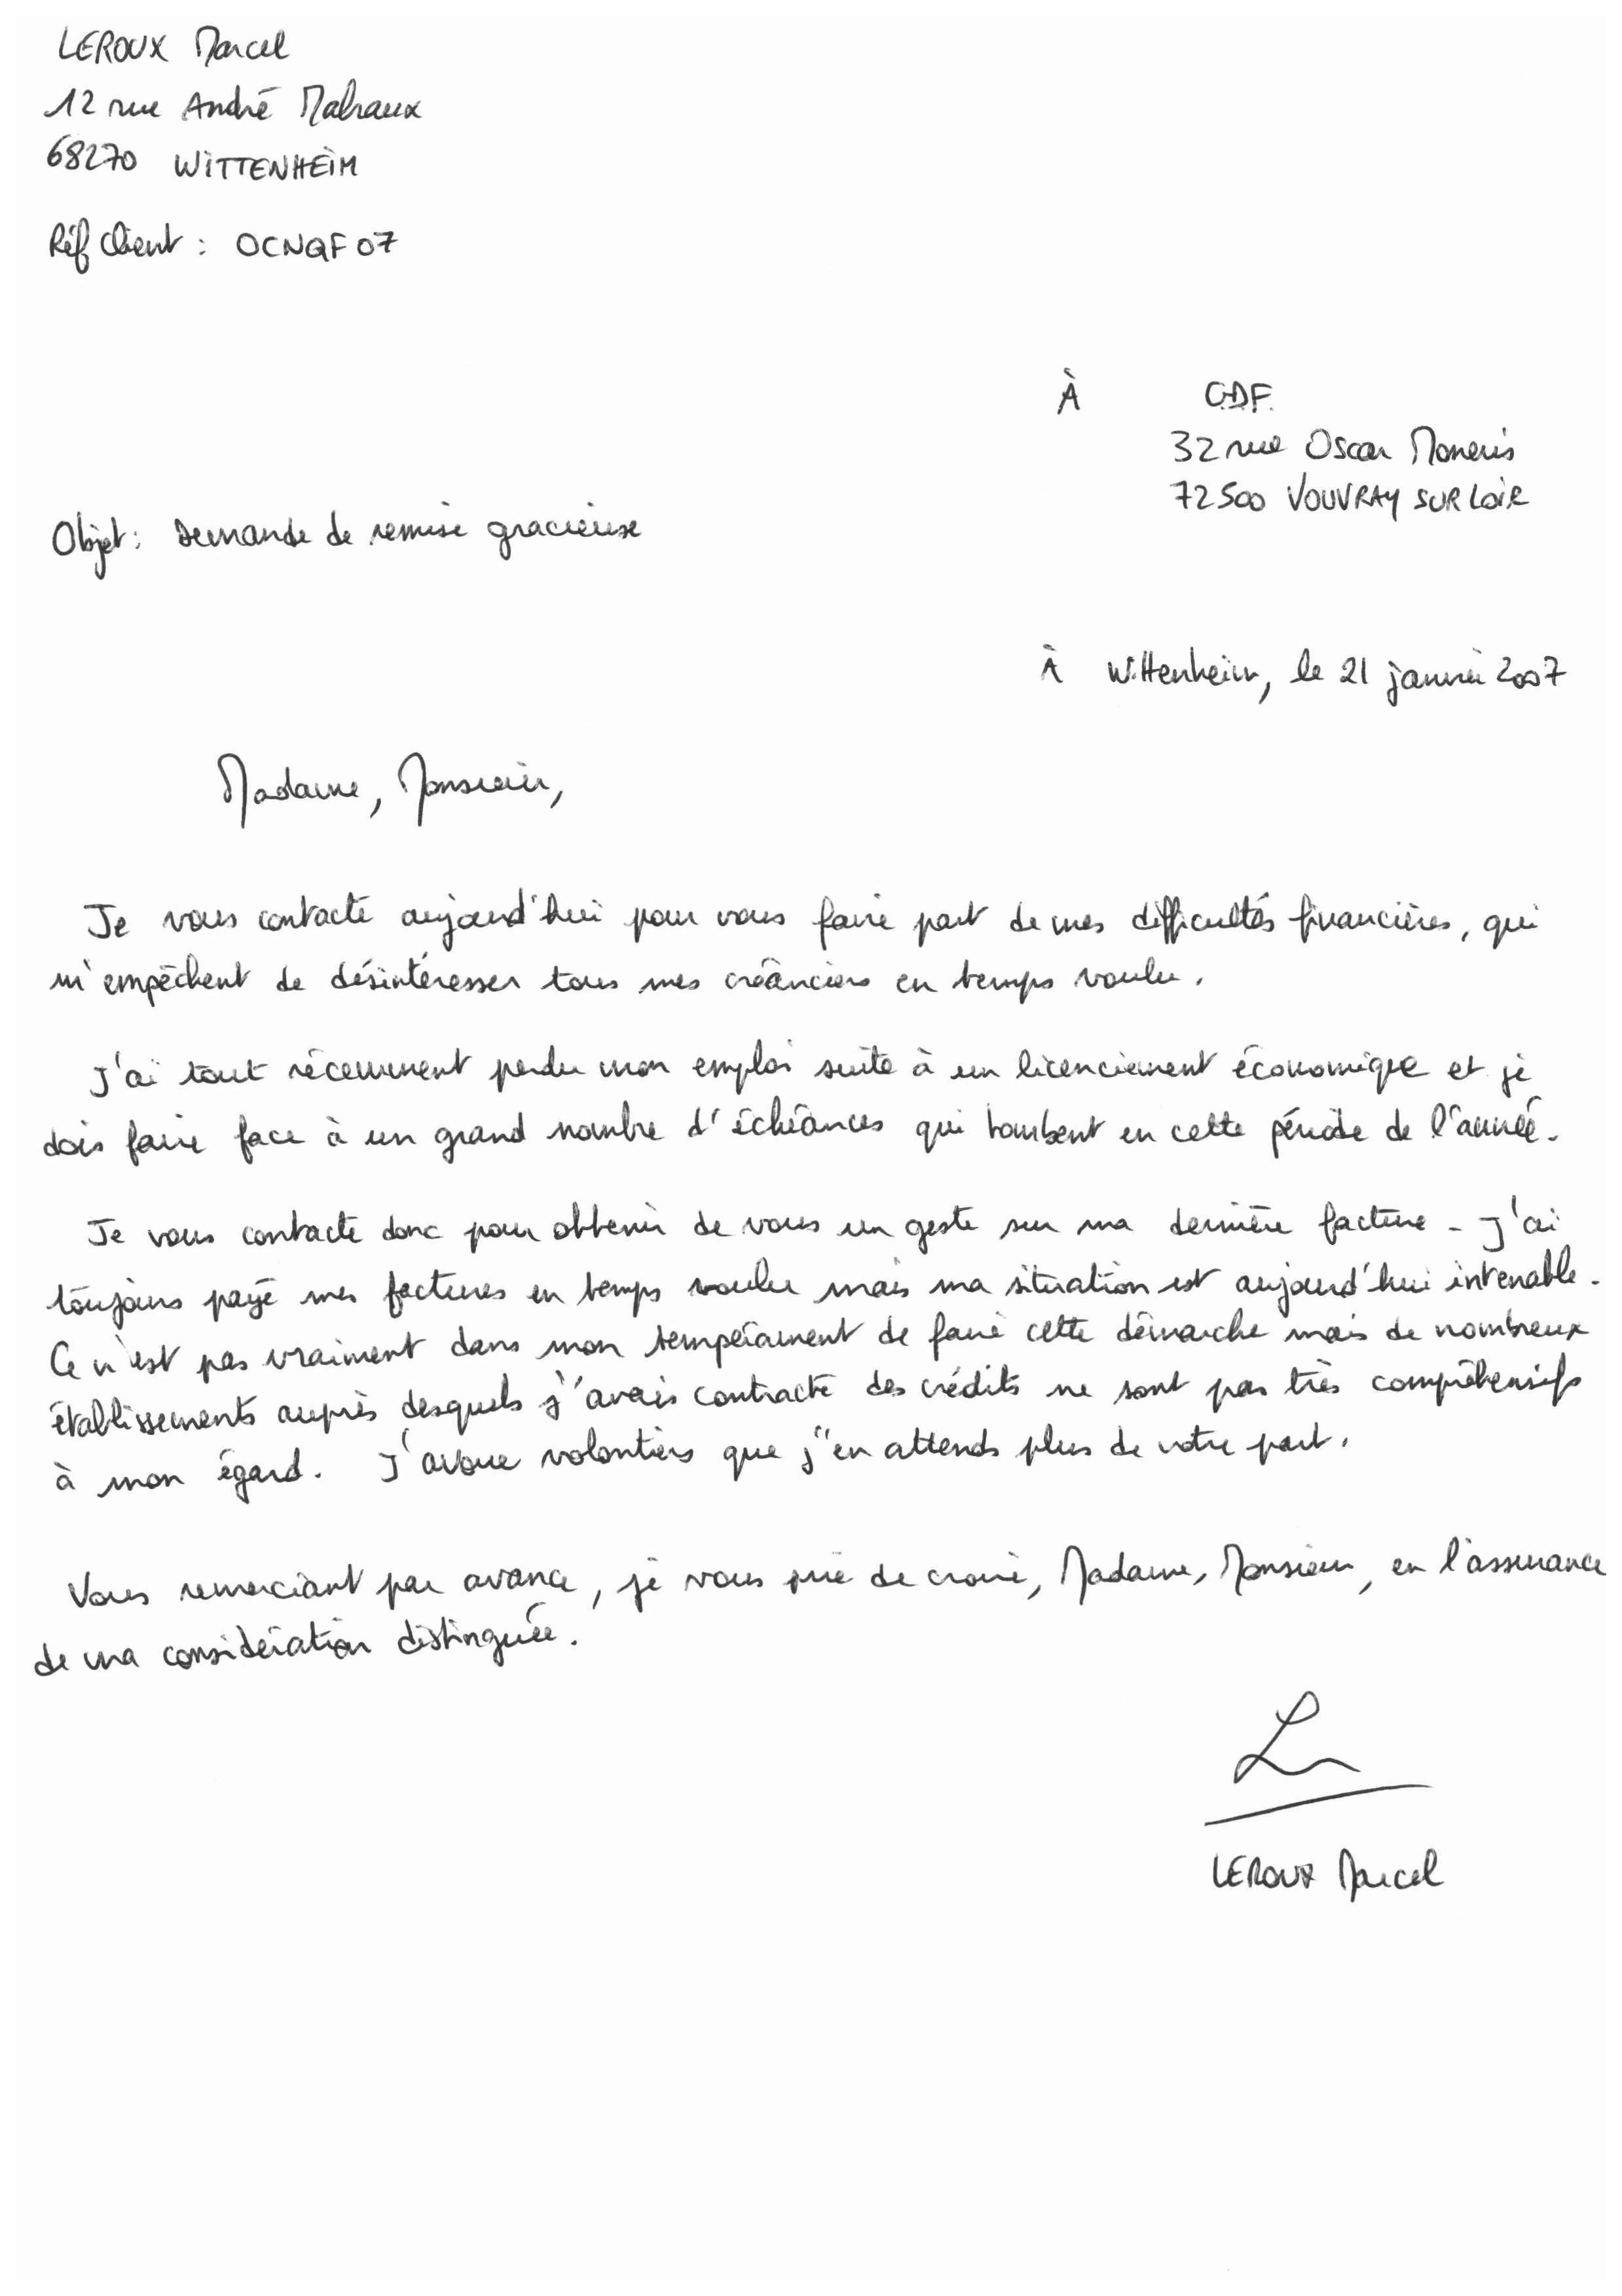 LEROUX Marcel
12 rue André Malraux
68270 WITTENHEIM
Réf Client : OCNQF07
À CDF
32 rue Oscar Moneris
72500 VOUVRAY SUR LOIR
Objet : Demande de remise gracieuse
À Wittenheim, le 21 janvier 2007
Madame, Monsieur,
Je vous contacte aujourd'hui pour vous faire part de mes difficultés financières, qui
m'empêchent de désintéresser tous mes créanciers en temps voulu.
J'ai tout récemment perdu mon emploi suite à un licenciement économique et je
dois faire face à un grand nombre d'échéances qui tombent en cette période de l'année.
Je vous contacte donc pour obtenir de vous un geste sur ma dernière facture. J'ai
toujours payé mes factures en temps voulu mais ma situation est aujourd'hui intenable.
Ce n'est pas vraiment dans mon tempérament de faire cette démarche mais de nombreux
établissements auprès desquels j'avais contracté des crédits ne sont pas très compréhensifs
à mon égard. J'avoue volontiers que j'en attends plus de votre part.
Vous remerciant par avance, je vous prie de croire, Madame, Monsieur, en l'assurance
de ma considération distinguée.
LEROUX Marcel